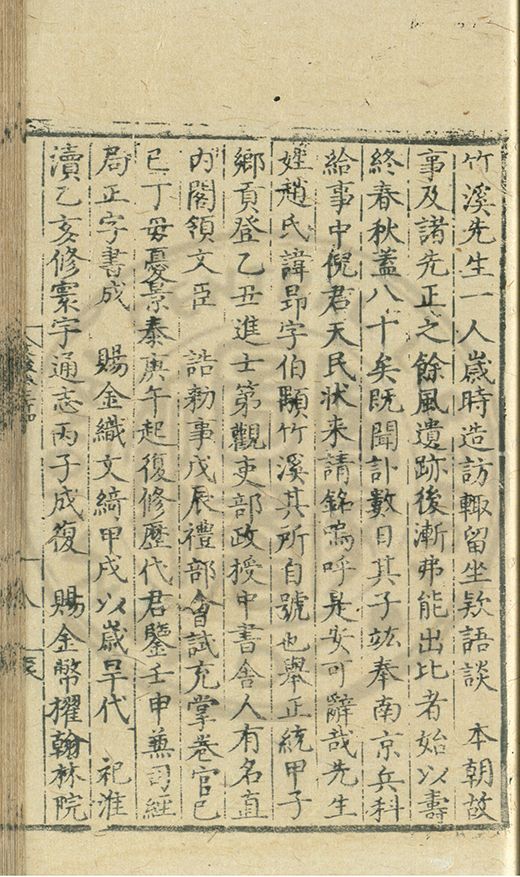 竹溪先生一人歲時造訪輙留坐欵語談　本朝故
事及諸先正之餘風遺跡後漸弗能出比者始以壽
終春秋蓋八十矣既聞訃數日其子竑奉南京兵科
給事中倪君天民狀来請銘嗚呼是安可辭哉先生
姓趙氏諱昂字伯顒竹溪其所自號也舉正統甲子
鄉貢登乙丑進士第觀吏部政授中書舍人有名直
內閣領文臣　誥勑事戊辰禮部會試充掌卷官己
巳丁母憂景泰庚午起復修歷代君鑒壬申兼司經
局正字書成　賜金織文綺甲戌以歲旱代　祀淮
瀆乙亥修寰宇通志丙子成復　賜金幣擢翰林院